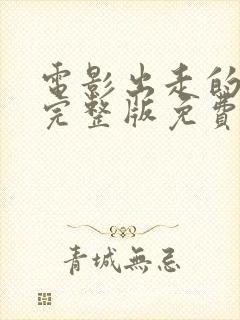 電影出走的
完整版免費
青城無忌